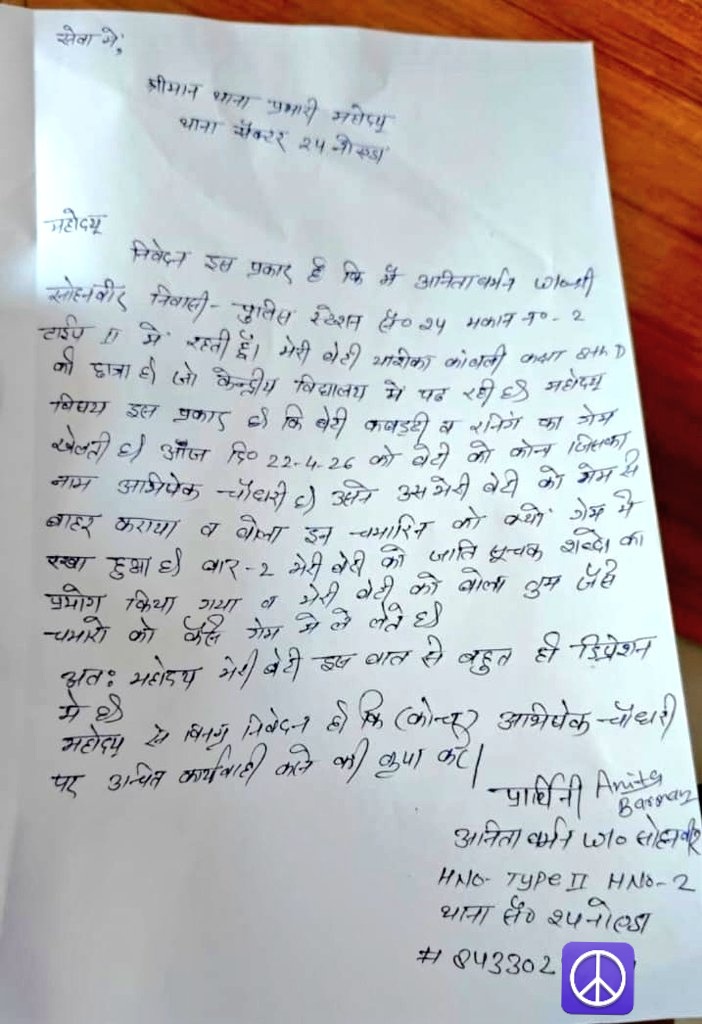 सेवा में,
श्रीमान थाना प्रभारी महोदय
थाना सैक्टर 24 नोएडा
महोदय
निवेदन इस प्रकार है कि मैं अनिता बर्मन w/o श्री
सोहनवीर निवासी - पुलिस स्टेशन सै० 24 मकान न० - 2
टाईप II में रहती हूँ। मेरी बेटी कक्षा 8th D
की छात्रा है। जो केन्द्रीय विद्यालय में पढ रही है। महोदय
विषय इस प्रकार है। कि बेटी कबड्डी व रनिंग का गेम
खेलती है। आज दि० 22-4-26 को बेटी को कोच जिसका
नाम अभिषेक चौधरी है। उसने उस मेरी बेटी को गेम से
बाहर कराया व बोला इन चमारिन को क्यों गेम में
रखा हुआ है। बार-2 मेरी बेटी को जाति सूचक शब्दो का
प्रयोग किया गया व मेरी बेटी को बोला तुम जैसे
चमारो को कैसे गेम में ले लेते है।
अतः महोदय मेरी बेटी इस बात से बहुत ही डिप्रेशन
में है।
महोदय से विनम्र निवेदन है कि (कोच) अभिषेक चौधरी
पर उचित कार्यवाही करने की कृपा करें।
प्रार्थिनी Anita
Barman
अनिता बर्मन w/o सोहनवीर
HNO- TYPE II HNO-2
थाना सै० 24 नोएडा
# 843302